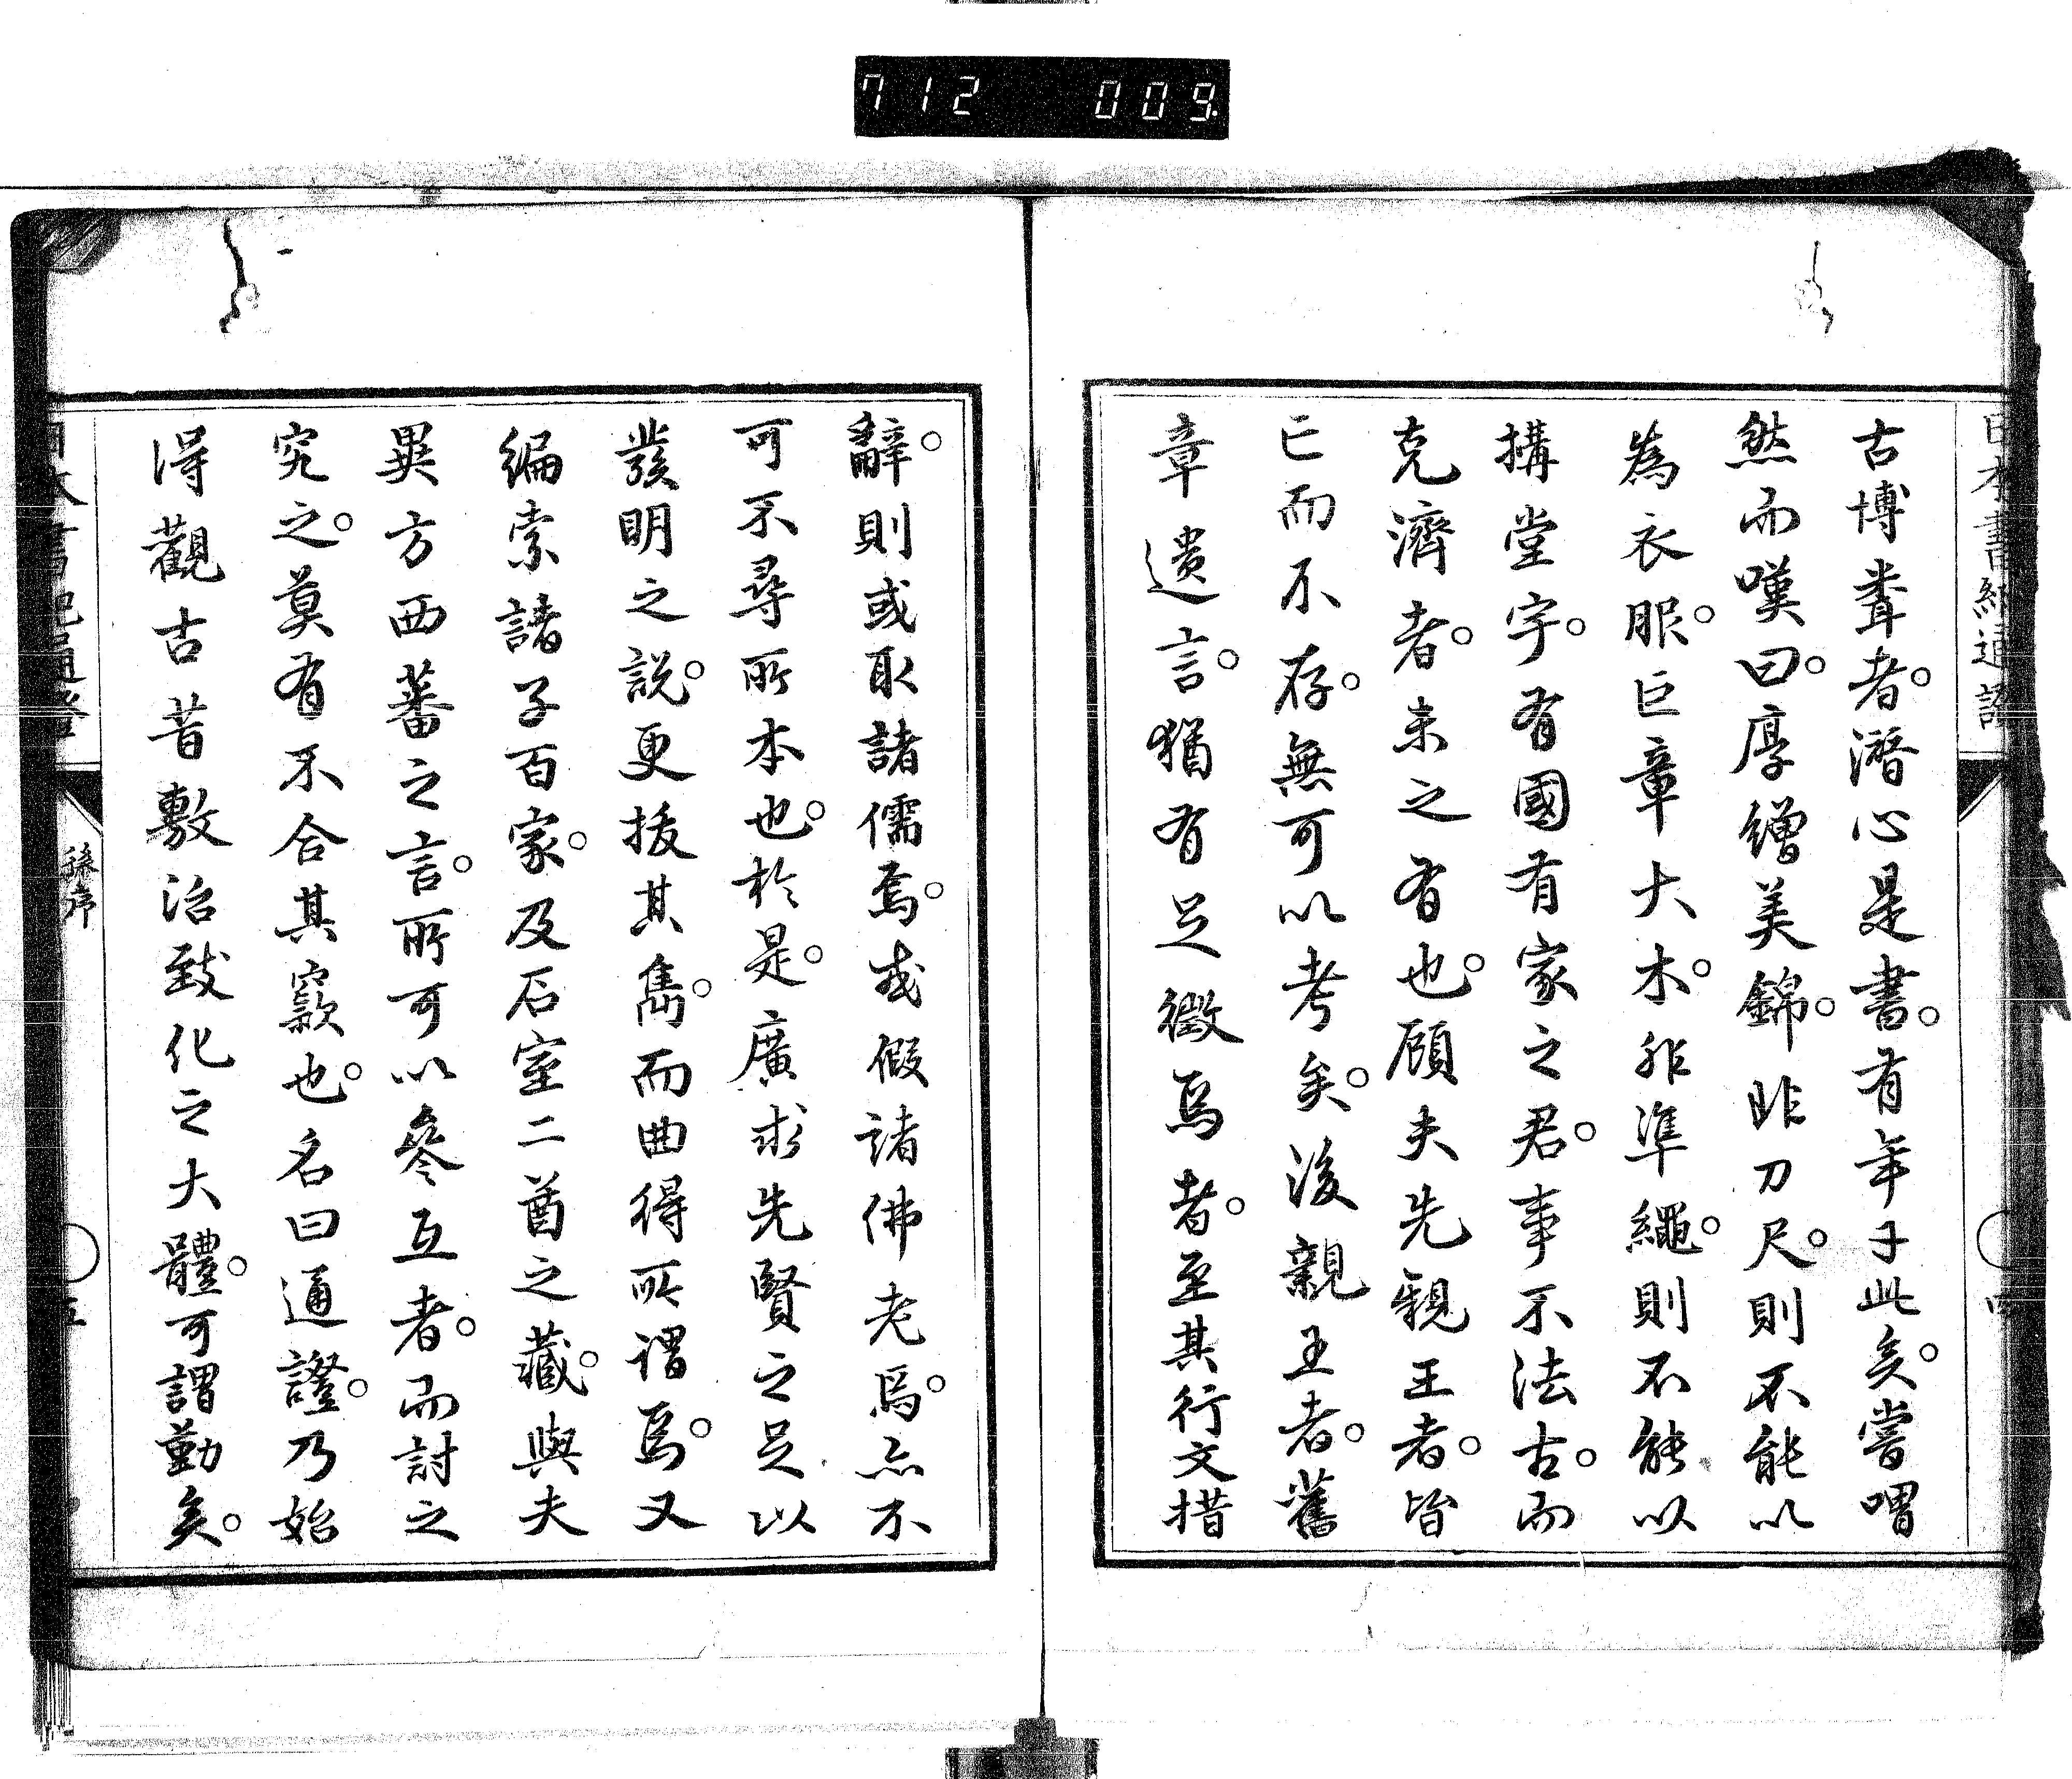 712 009
日本書紀通證
四
古博聱者。潛心是書。有年于此矣。嘗喟
然而嘆曰。厚繒美錦。非刀尺。則不能以
為衣服。巨章大木。非準繩。則不能以
搆堂宇。有國有家之君。事不法古。而
克濟者。未之有也。顧夫先親王者。皆
亡而不存。無可以考矣。後親王者。舊
章遺言。猶有足徵焉者。至其行文措
辭。則或取諸儒焉。或假諸佛老焉。亦不
可不尋所本也。於是。廣求先賢之足以
發明之說。更拔其雋。而曲得所謂焉。又
編索諸子百家。及石室二酉之藏。與夫
異方西蕃之言。所可以參互者。而討之
究之。莫有不合其窾也。名曰通證。乃始
得觀古昔敷治致化之大體。可謂勤矣。
日本書紀通證
序
五